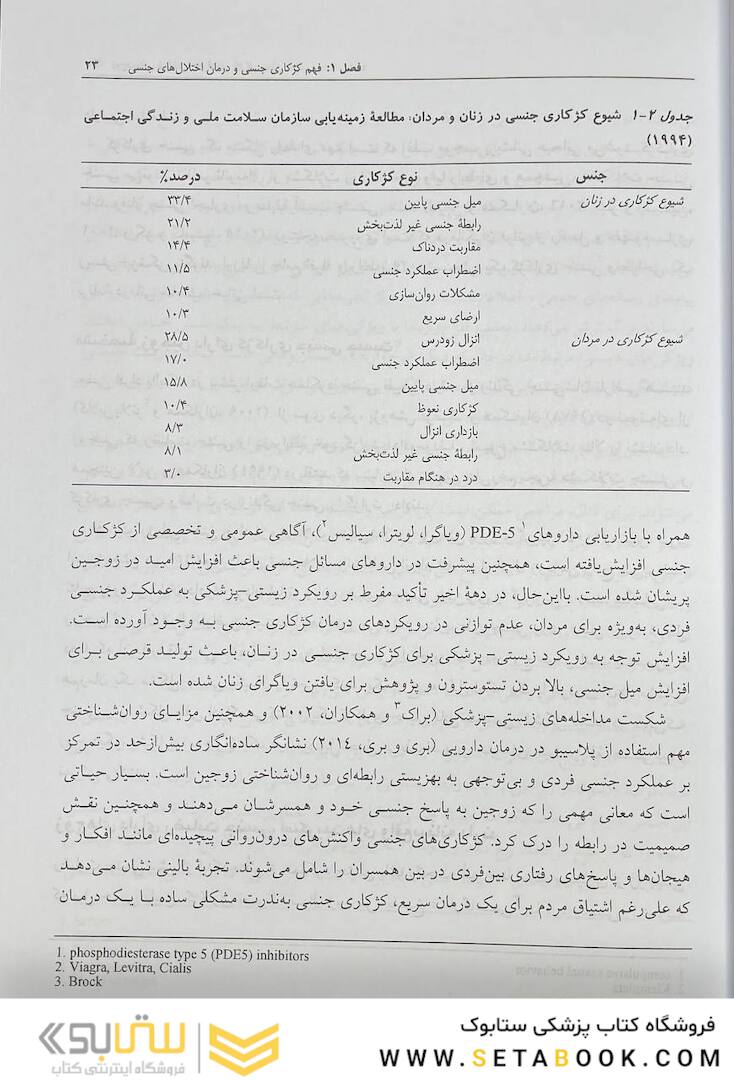 فصل ۱: فهم کژکاری جنسی و درمان اختلال‌های جنسی ۲۳
جدول ۲-۱ شیوع کژکاری جنسی در زنان و مردان: مطالعهٔ زمینه‌یابی سازمان سلامت ملی و زندگی اجتماعی
(۱۹۹۴)
جنس نوع کژکاری درصد%
شیوع کژکاری در زنان میل جنسی پایین ۳۳/۴
رابطهٔ جنسی غیر لذت‌بخش ۲۱/۲
مقاربت دردناک ۱۴/۴
اضطراب عملکرد جنسی ۱۱/۵
مشکلات روان‌سازی ۱۰/۴
ارضای سریع ۱۰/۳
شیوع کژکاری در مردان انزال زودرس ۲۸/۵
اضطراب عملکرد جنسی ۱۷/۰
میل جنسی پایین ۱۵/۸
کژکاری نعوظ ۱۰/۴
بازداری انزال ۸/۳
رابطهٔ جنسی غیر لذت‌بخش ۸/۱
درد در هنگام مقاربت ۳/۰
همراه با بازاریابی داروهای PDE-5 ¹ (ویاگرا، لویترا، سیالیس²)، آگاهی عمومی و تخصصی از کژکاری
جنسی افزایش‌یافته است، همچنین پیشرفت در داروهای مسائل جنسی باعث افزایش امید در زوجین
پریشان شده است. بااین‌حال، در دههٔ اخیر تأکید مفرط بر رویکرد زیستی-پزشکی به عملکرد جنسی
فردی، به‌ویژه برای مردان، عدم توازنی در رویکردهای درمان کژکاری جنسی به وجود آورده است.
افزایش توجه به رویکرد زیستی- پزشکی برای کژکاری جنسی در زنان، باعث تولید قرصی برای
افزایش میل جنسی، بالا بردن تستوسترون و پژوهش برای یافتن ویاگرای زنان شده است.
شکست مداخله‌های زیستی-پزشکی (براک³ و همکاران، ۲۰۰۲) و همچنین مزایای روان‌شناختی
مهم استفاده از پلاسیبو در درمان دارویی (بری و بری، ۲۰۱۴) نشانگر ساده‌انگاری بیش‌ازحد در تمرکز
بر عملکرد جنسی فردی و بی‌توجهی به بهزیستی رابطه‌ای و روان‌شناختی زوجین است. بسیار حیاتی
است که معانی مهمی را که زوجین به پاسخ جنسی خود و همسرشان می‌دهند و همچنین نقش
صمیمیت در رابطه را درک کرد. کژکاری‌های جنسی واکنش‌های درون‌روانی پیچیده‌ای مانند افکار و
هیجان‌ها و پاسخ‌های رفتاری بین‌فردی در بین همسران را شامل می‌شوند. تجربهٔ بالینی نشان می‌دهد
که علی‌رغم اشتیاق مردم برای یک درمان سریع، کژکاری جنسی به‌ندرت مشکلی ساده با یک درمان
1. phosphodiesterase type 5 (PDE5) inhibitors
2. Viagra, Levitra, Cialis
3. Brock
فروشگاه کتاب پزشکی ستابوک
WWW.SETABOOK.COM
ستابوک
فروشگاه اینترنتی کتاب